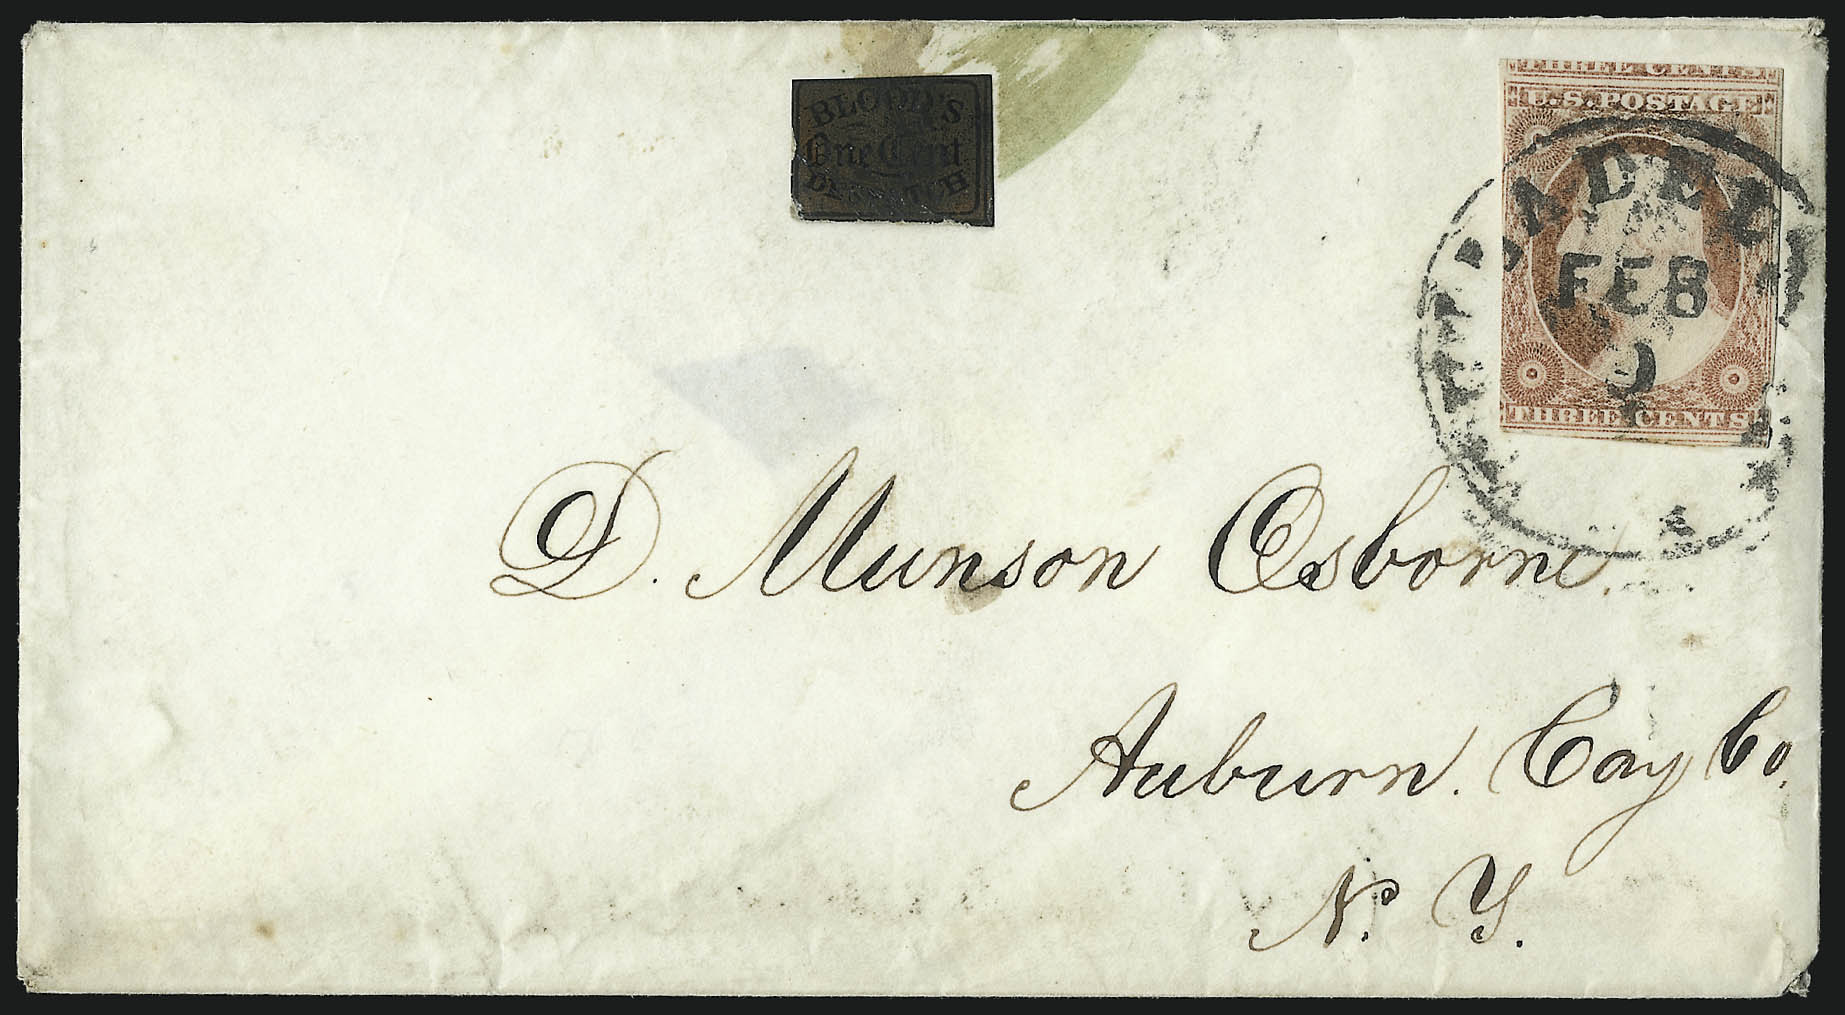 BLOOD'S
One Cent
DESPATCH
THREE CENTS
U.S. POSTAGE
FEB
9
THREE CENTS
D. Munson Osborne.
Auburn. Cay Co.
N. Y.